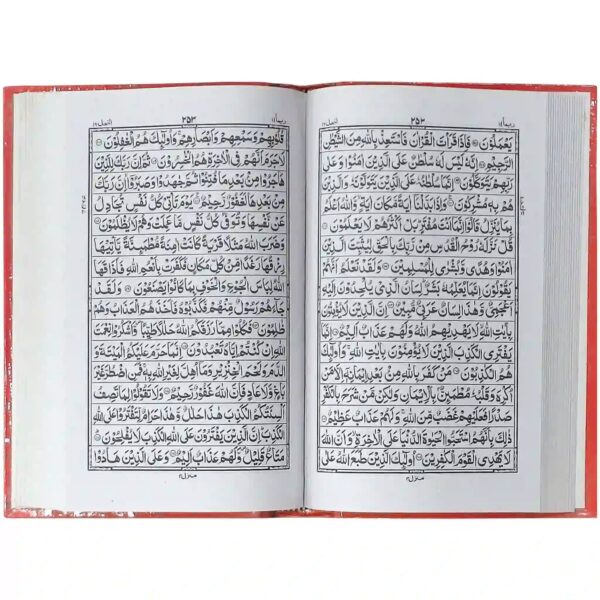 ربما ١٤
النحل ١٦
يَعْمَلُوْنَ ۝ فَاِذَا قَرَاْتَ الْقُرْاٰنَ فَاسْتَعِذْ بِاللّٰهِ مِنَ الشَّيْطٰنِ
الرَّجِيْمِ ۝ اِنَّهٗ لَيْسَ لَهٗ سُلْطٰنٌ عَلَى الَّذِيْنَ اٰمَنُوْا وَعَلٰى
رَبِّهِمْ يَتَوَكَّلُوْنَ ۝ اِنَّمَا سُلْطٰنُهٗ عَلَى الَّذِيْنَ يَتَوَلَّوْنَهٗ وَالَّذِيْنَ
هُمْ بِهٖ مُشْرِكُوْنَ ۝ وَاِذَا بَدَّلْنَاۤ اٰيَةً مَّكَانَ اٰيَةٍ ۙ وَّاللّٰهُ اَعْلَمُ
بِمَا يُنَزِّلُ قَالُوْۤا اِنَّمَاۤ اَنْتَ مُفْتَرٍ ؕ بَلْ اَكْثَرُهُمْ لَا يَعْلَمُوْنَ ۝
قُلْ نَزَّلَهٗ رُوْحُ الْقُدُسِ مِنْ رَّبِّكَ بِالْحَقِّ لِيُثَبِّتَ الَّذِيْنَ
اٰمَنُوْا وَهُدًى وَّبُشْرٰى لِلْمُسْلِمِيْنَ ۝ وَلَقَدْ نَعْلَمُ اَنَّهُمْ
يَقُوْلُوْنَ اِنَّمَا يُعَلِّمُهٗ بَشَرٌ ؕ لِسَانُ الَّذِيْ يُلْحِدُوْنَ اِلَيْهِ
اَعْجَمِيٌّ وَّهٰذَا لِسَانٌ عَرَبِيٌّ مُّبِيْنٌ ۝ اِنَّ الَّذِيْنَ لَا يُؤْمِنُوْنَ
بِاٰيٰتِ اللّٰهِ ۙ لَا يَهْدِيْهِمُ اللّٰهُ وَلَهُمْ عَذَابٌ اَلِيْمٌ ۝ اِنَّمَا
يَفْتَرِى الْكَذِبَ الَّذِيْنَ لَا يُؤْمِنُوْنَ بِاٰيٰتِ اللّٰهِ ۚ وَاُولٰٓئِكَ
هُمُ الْكٰذِبُوْنَ ۝ مَنْ كَفَرَ بِاللّٰهِ مِنْۢ بَعْدِ اِيْمَانِهٖۤ اِلَّا مَنْ
اُكْرِهَ وَقَلْبُهٗ مُطْمَئِنٌّۢ بِالْاِيْمَانِ وَلٰكِنْ مَّنْ شَرَحَ بِالْكُفْرِ
صَدْرًا فَعَلَيْهِمْ غَضَبٌ مِّنَ اللّٰهِ ۚ وَلَهُمْ عَذَابٌ عَظِيْمٌ ۝
ذٰلِكَ بِاَنَّهُمُ اسْتَحَبُّوا الْحَيٰوةَ الدُّنْيَا عَلَى الْاٰخِرَةِ ۙ وَاَنَّ اللّٰهَ
لَا يَهْدِى الْقَوْمَ الْكٰفِرِيْنَ ۝ اُولٰٓئِكَ الَّذِيْنَ طَبَعَ اللّٰهُ عَلٰى
منزل ٣
ربما ١٤
٢٥٣
النحل ١٦
قُلُوْبِهِمْ وَسَمْعِهِمْ وَاَبْصَارِهِمْ ۚ وَاُولٰٓئِكَ هُمُ الْغٰفِلُوْنَ ۝
لَا جَرَمَ اَنَّهُمْ فِى الْاٰخِرَةِ هُمُ الْخٰسِرُوْنَ ۝ ثُمَّ اِنَّ رَبَّكَ لِلَّذِيْنَ
هَاجَرُوْا مِنْۢ بَعْدِ مَا فُتِنُوْا ثُمَّ جٰهَدُوْا وَصَبَرُوْۤا ۙ اِنَّ رَبَّكَ
مِنْۢ بَعْدِهَا لَغَفُوْرٌ رَّحِيْمٌ ۝ يَوْمَ تَاْتِيْ كُلُّ نَفْسٍ تُجَادِلُ
عَنْ نَّفْسِهَا وَتُوَفّٰى كُلُّ نَفْسٍ مَّا عَمِلَتْ وَهُمْ لَا يُظْلَمُوْنَ ۝
وَضَرَبَ اللّٰهُ مَثَلًا قَرْيَةً كَانَتْ اٰمِنَةً مُّطْمَئِنَّةً يَّاْتِيْهَا
رِزْقُهَا رَغَدًا مِّنْ كُلِّ مَكَانٍ فَكَفَرَتْ بِاَنْعُمِ اللّٰهِ فَاَذَاقَهَا
اللّٰهُ لِبَاسَ الْجُوْعِ وَالْخَوْفِ بِمَا كَانُوْا يَصْنَعُوْنَ ۝ وَلَقَدْ
جَآءَهُمْ رَسُوْلٌ مِّنْهُمْ فَكَذَّبُوْهُ فَاَخَذَهُمُ الْعَذَابُ وَهُمْ
ظٰلِمُوْنَ ۝ فَكُلُوْا مِمَّا رَزَقَكُمُ اللّٰهُ حَلٰلًا طَيِّبًا ۪ وَّاشْكُرُوْا نِعْمَتَ
اللّٰهِ اِنْ كُنْتُمْ اِيَّاهُ تَعْبُدُوْنَ ۝ اِنَّمَا حَرَّمَ عَلَيْكُمُ الْمَيْتَةَ وَ
الدَّمَ وَلَحْمَ الْخِنْزِيْرِ وَمَاۤ اُهِلَّ لِغَيْرِ اللّٰهِ بِهٖ ۚ فَمَنِ اضْطُرَّ غَيْرَ
بَاغٍ وَّلَا عَادٍ فَاِنَّ اللّٰهَ غَفُوْرٌ رَّحِيْمٌ ۝ وَلَا تَقُوْلُوْا لِمَا تَصِفُ
اَلْسِنَتُكُمُ الْكَذِبَ هٰذَا حَلٰلٌ وَّهٰذَا حَرَامٌ لِّتَفْتَرُوْا عَلَى اللّٰهِ
الْكَذِبَ ؕ اِنَّ الَّذِيْنَ يَفْتَرُوْنَ عَلَى اللّٰهِ الْكَذِبَ لَا يُفْلِحُوْنَ ۝
مَتَاعٌ قَلِيْلٌ ۪ وَّلَهُمْ عَذَابٌ اَلِيْمٌ ۝ وَعَلَى الَّذِيْنَ هَادُوْا
منزل ٣